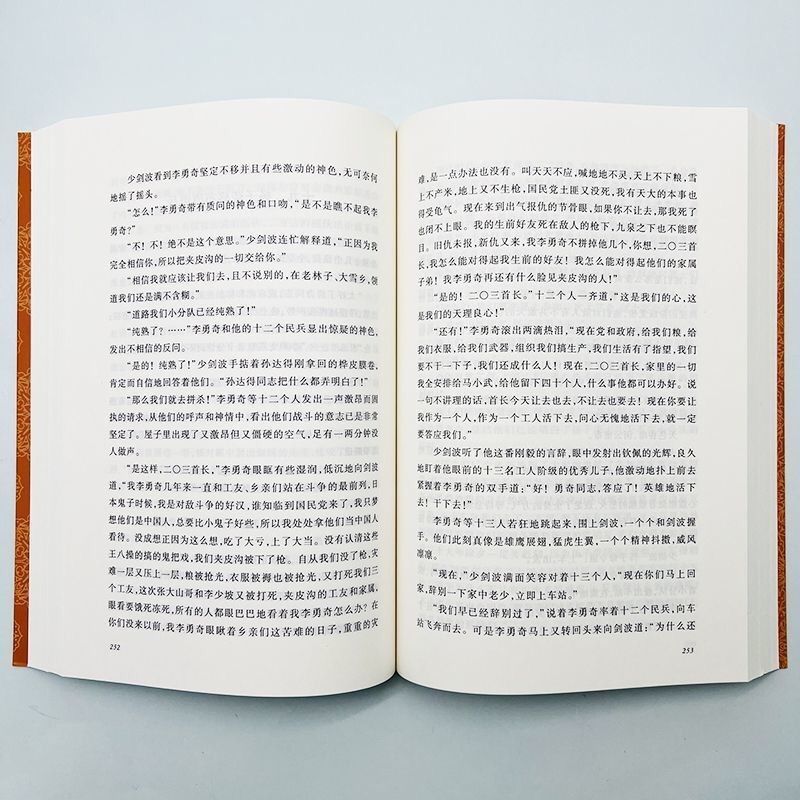 少剑波看到李勇奇坚定不移并且有些激动的神色,无可奈何
地摇了摇头。
“怎么!”李勇奇带有质问的神色和口吻,“是不是瞧不起我李
勇奇?”
“不!不!绝不是这个意思。”少剑波连忙解释道,“正因为我
完全相信你,所以把夹皮沟的一切交给你。”
“相信我就应该让我们去,且不说别的,在老林子、大雪乡,领
道我们还是满不含糊。”
“道路我们小分队已经纯熟了!”
“纯熟了?……”李勇奇和他的十二个民兵显出惊疑的神色,
发出不相信的反问。
“是的!纯熟了!”少剑波手掂着孙达得刚拿回的桦皮膜卷,
肯定而自信地回答着他们。“孙达得同志把什么都弄明白了!”
“那么我们就去拼杀!”李勇奇等十二个人发出一声激昂而固
执的请求,从他们的呼声和神情中,看出他们战斗的意志已是非常
坚定了。屋子里出现了又激昂但又僵硬的空气,足有一两分钟没
人做声。
“是这样,二〇三首长,”李勇奇眼眶有些湿润,低沉地向剑波
道,“我李勇奇几年来一直和工友、乡亲们站在斗争的最前列,日
本鬼子时候,我是对敌斗争的好汉,谁知临到国民党来了,我只梦
想他们是中国人,总要比小鬼子好些,所以我处处拿他们当中国人
看待。没成想正因为这么想,吃了大亏,上了大当。没有认清这些
王八操的搞的鬼把戏,我们夹皮沟被下了枪。自从我们没了枪,灾
难一层又压上一层,粮被抢光,衣服被褥也被抢光,又打死我们三
个工友,这次张大山哥和李少坡又被打死,夹皮沟的工友和家属,
眼看要饿死冻死,所有的人都眼巴巴地看着我李勇奇怎么办?在
你们没来以前,我李勇奇眼瞅着乡亲们这苦难的日子,重重的灾
232
难,是一点办法也没有。叫天天不应,喊地地不灵,天上不下粮,雪
上不产米,地上又不生枪,国民党土匪又没死,我有天大的本事也
得受龟气。现在来到出气报仇的节骨眼,如果你不让去,那我死了
也闭不上眼。我的生前好友死在敌人的枪下,九泉之下也不能瞑
目。旧仇未报,新仇又来,我李勇奇不拼掉他几个,你想,二〇三首
长,我怎么能对得起我生前的好友!我怎么能对得起他们的家属
子弟!我李勇奇再还有什么脸见夹皮沟的人!”
“是的!二〇三首长。”十二个人一齐道,“这是我们的心,这
是我们的天理良心!”
“还有!”李勇奇滚出两滴热泪,“现在党和政府,给我们粮,给
我们衣服,给我们武器,组织我们搞生产,我们生活有了指望,我们
要不干一下子,我们还成什么人!现在,二〇三首长,家里的一切
我全安排给马小武,给他留下四十个人,什么事他都可以办好。说
一句不讲理的话,首长今天让去也去,不让去也要去!现在你要让
我作为一个人,作为一个工人活下去,问心无愧地活下去,就一定
要答应我们。”
少剑波听了他这番刚毅的言辞,眼中发射出钦佩的光辉,良久
地盯着他眼前的十三名工人阶级的优秀儿子,他激动地扑上前去
紧握着李勇奇的双手道:“好!勇奇同志,答应了!英雄地活下
去!干下去!”
李勇奇等十三人若狂地跳起来,围上剑波,一个个和剑波握
手。他们此刻真像是雄鹰展翅,猛虎生翼,一个个精神抖擞,威风
凛凛。
“现在,”少剑波满面笑容对着十三个人,“现在你们马上回
家,辞别一下家中老少,立即上车站。”
“我们早已经辞别过了,”说着李勇奇率着十二个民兵,向车
站飞奔而去。可是李勇奇马上又转回头来向剑波道:“为什么还
253